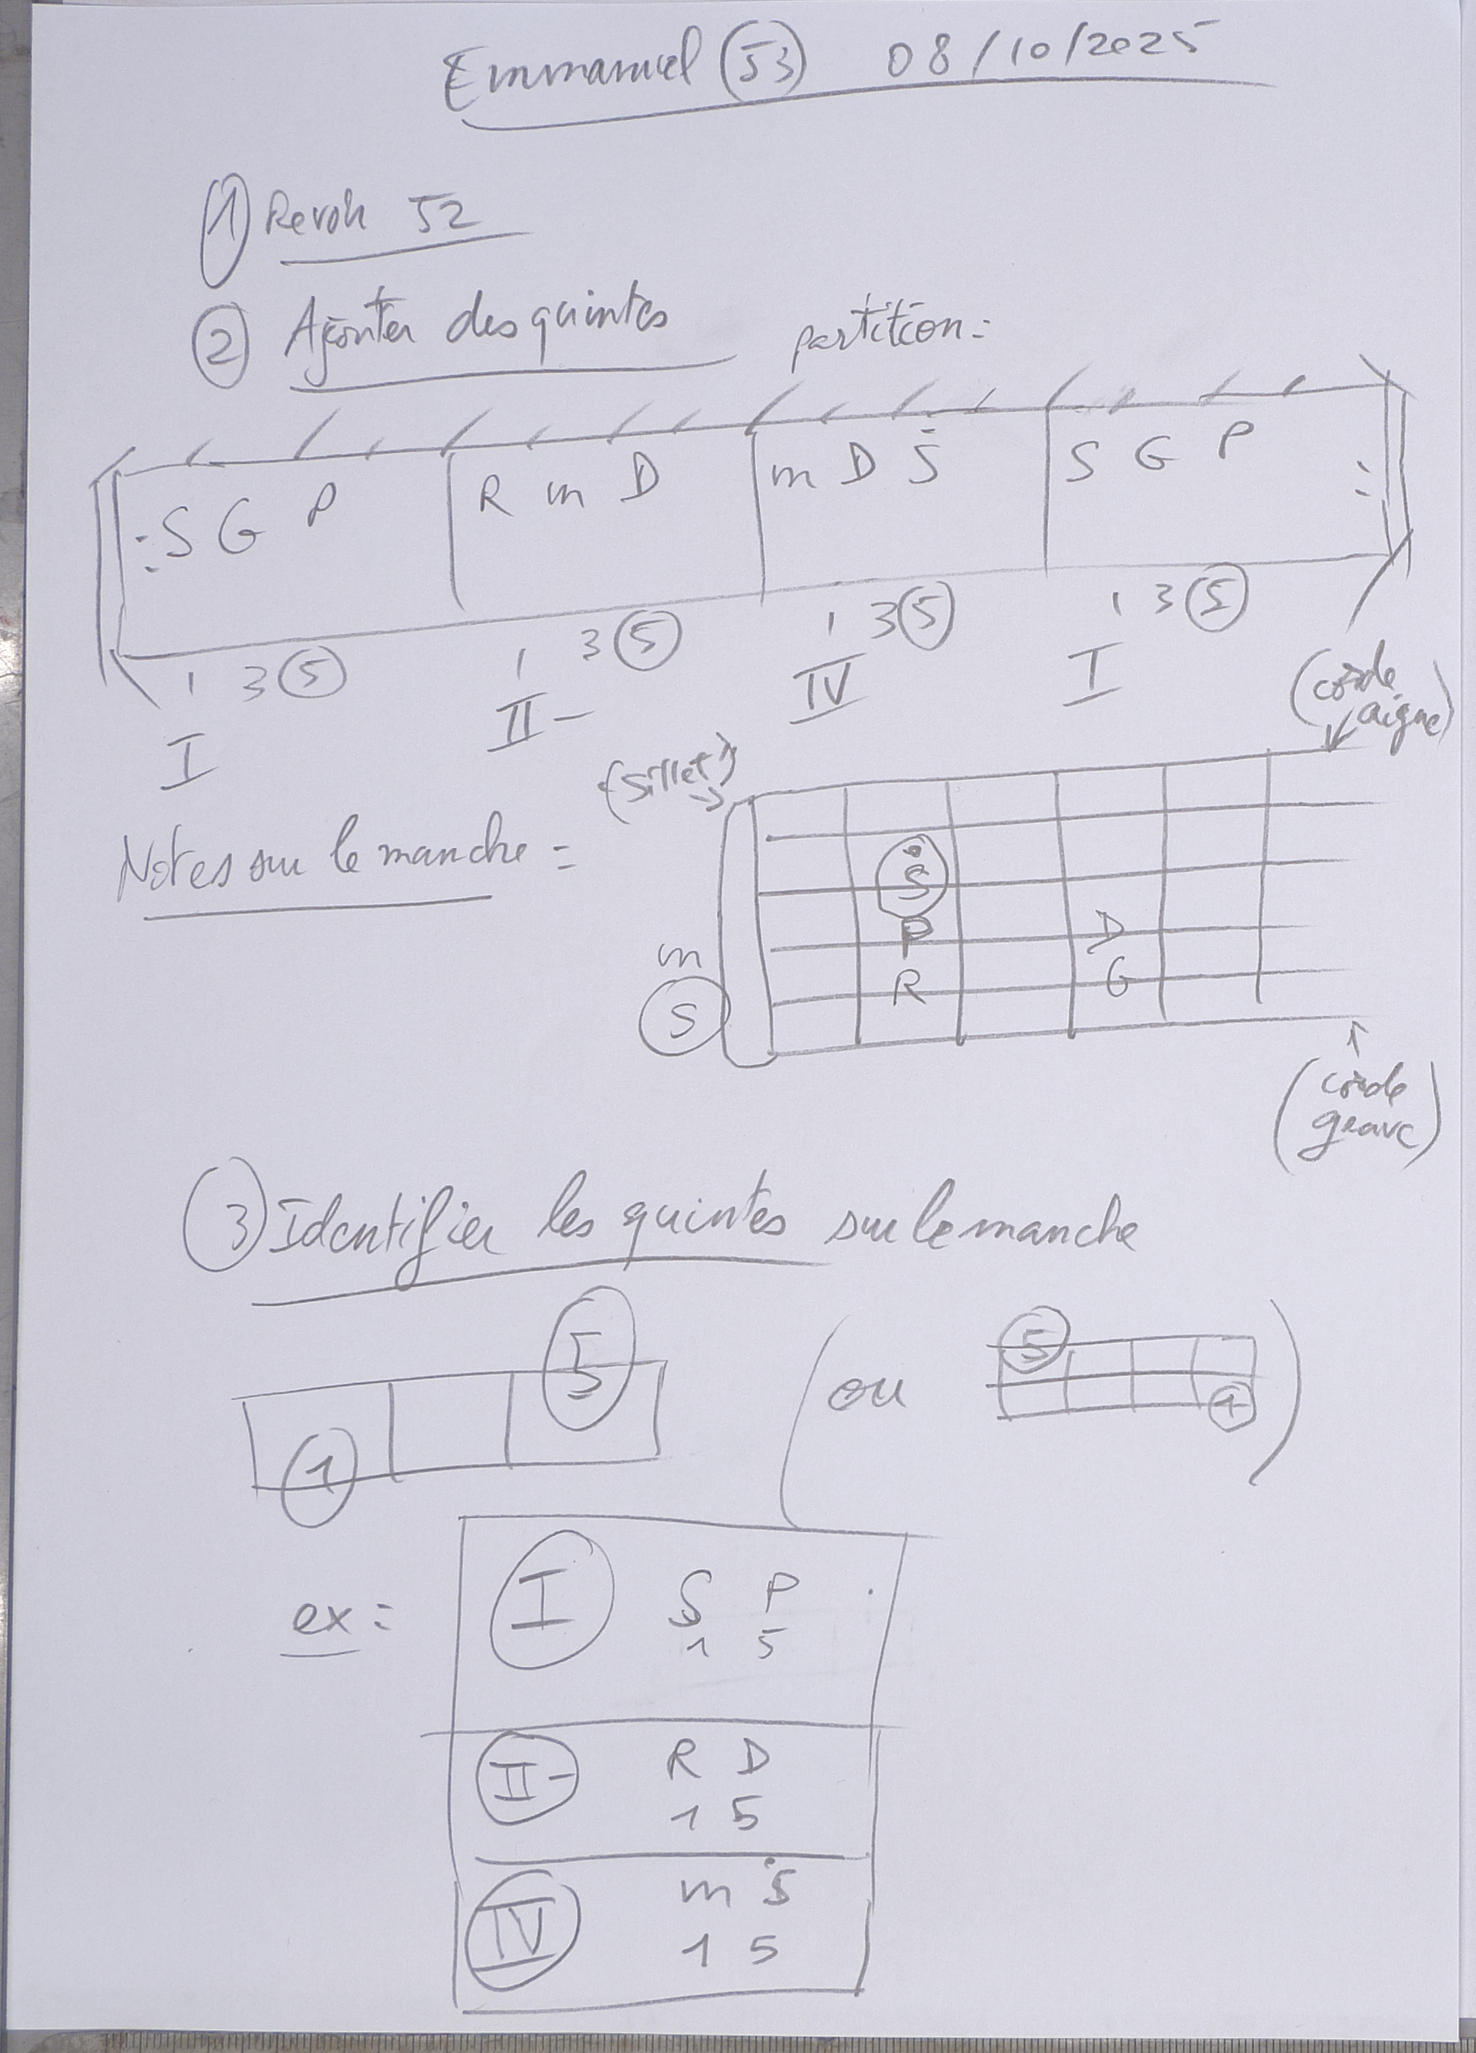 Emmanuel (53) 08/10/2025
1) Revoir 52
② Ajouter des quintes partition:
: S G P | R m D | m D Ṡ | S G P :
1 3 ⑤ 1 3 ⑤ 1 3 ⑤ 1 3 ⑤
I II- IV I
(corde aigue)
(sillet)
Notes sur le manche =
Ṡ
m P D
S R G
(corde grave)
③ Identifier les quintes sur le manche
5
1
(ou
5
1)
ex: I S P
1 5
II- R D
1 5
IV m ṡ
1 5